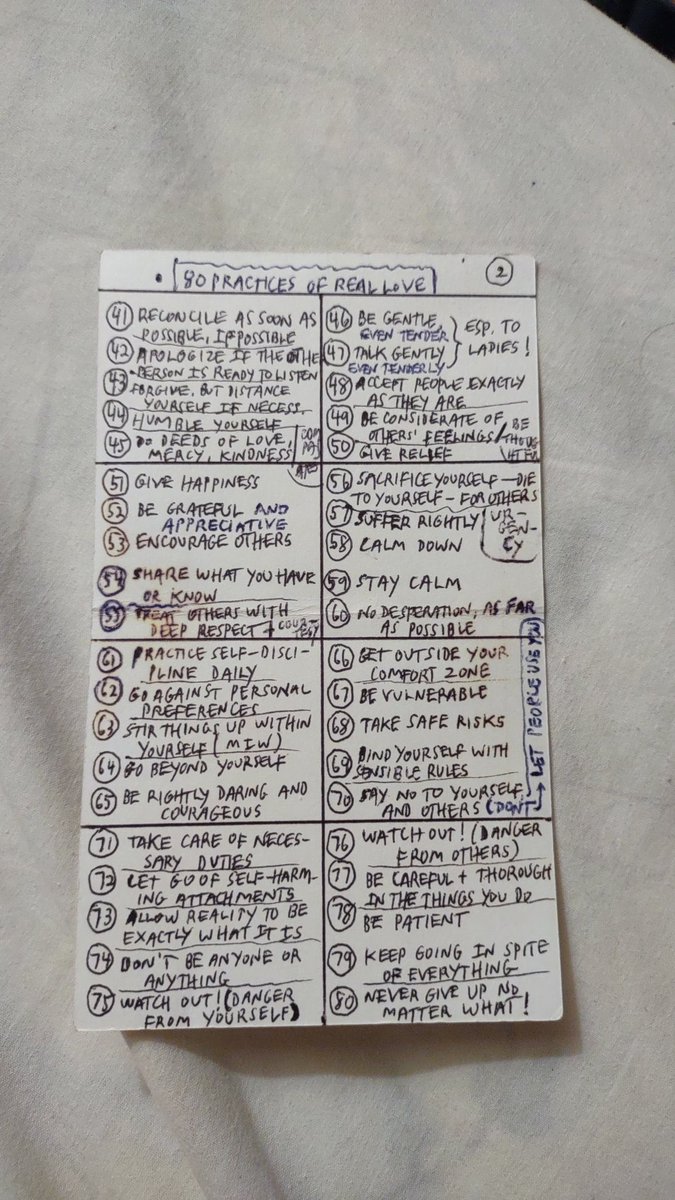 • 80 PRACTICES OF REAL LOVE
2
41 RECONCILE AS SOON AS
POSSIBLE, IF POSSIBLE
42 APOLOGIZE IF THE OTHE
PERSON IS READY TO LISTEN
43 FORGIVE, BUT DISTANCE
YOURSELF IF NECESS.
44 HUMBLE YOURSELF
45 DO DEEDS OF LOVE,
MERCY, KINDNESS
COM
PAS
46 BE GENTLE,
EVEN TENDER
47 TALK GENTLY
EVEN TENDERLY
ESP. TO
LADIES!
48 ACCEPT PEOPLE EXACTLY
AS THEY ARE
49 BE CONSIDERATE OF
OTHERS' FEELINGS / BE
THOUG
HTFUL
50 GIVE RELIEF
51 GIVE HAPPINESS
52 BE GRATEFUL AND
APPRECIATIVE
53 ENCOURAGE OTHERS
54 SHARE WHAT YOU HAVE
OR KNOW
55 TREAT OTHERS WITH
DEEP RESPECT + COUR-
TESY
56 SACRIFICE YOURSELF—DIE
TO YOURSELF—FOR OTHERS
57 SUFFER RIGHTLY
UR-
GEN-
CY
58 CALM DOWN
59 STAY CALM
60 NO DESPERATION, AS FAR
AS POSSIBLE
61 PRACTICE SELF-DISCI-
PLINE DAILY
62 GO AGAINST PERSONAL
PREFERENCES
63 STIR THINGS UP WITHIN
YOURSELF (MIW)
64 GO BEYOND YOURSELF
65 BE RIGHTLY DARING AND
COURAGEOUS
66 GET OUTSIDE YOUR
COMFORT ZONE
67 BE VULNERABLE
68 TAKE SAFE RISKS
69 BIND YOURSELF WITH
SENSIBLE RULES
70 SAY NO TO YOURSELF
AND OTHERS (DON'T
LET PEOPLE USE YOU)
71 TAKE CARE OF NECES-
SARY DUTIES
72 LET GO OF SELF-HARM-
ING ATTACHMENTS
73 ALLOW REALITY TO BE
EXACTLY WHAT IT IS
74 DON'T BE ANYONE OR
ANYTHING
75 WATCH OUT! (DANGER
FROM YOURSELF)
76 WATCH OUT! (DANGER
FROM OTHERS)
77 BE CAREFUL + THOROUGH
IN THE THINGS YOU DO
78 BE PATIENT
79 KEEP GOING IN SPITE
OF EVERYTHING
80 NEVER GIVE UP NO
MATTER WHAT!